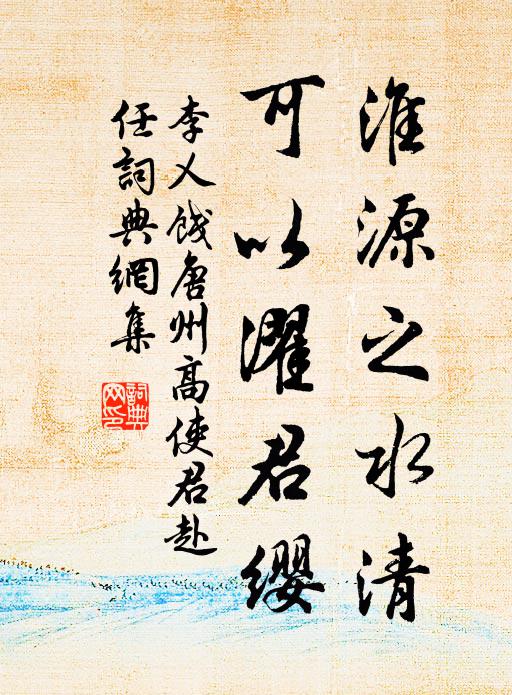 淮源之水清
可以濯君缨
李乂餞唐州高使君赴
任詞典網集
詞典
网印